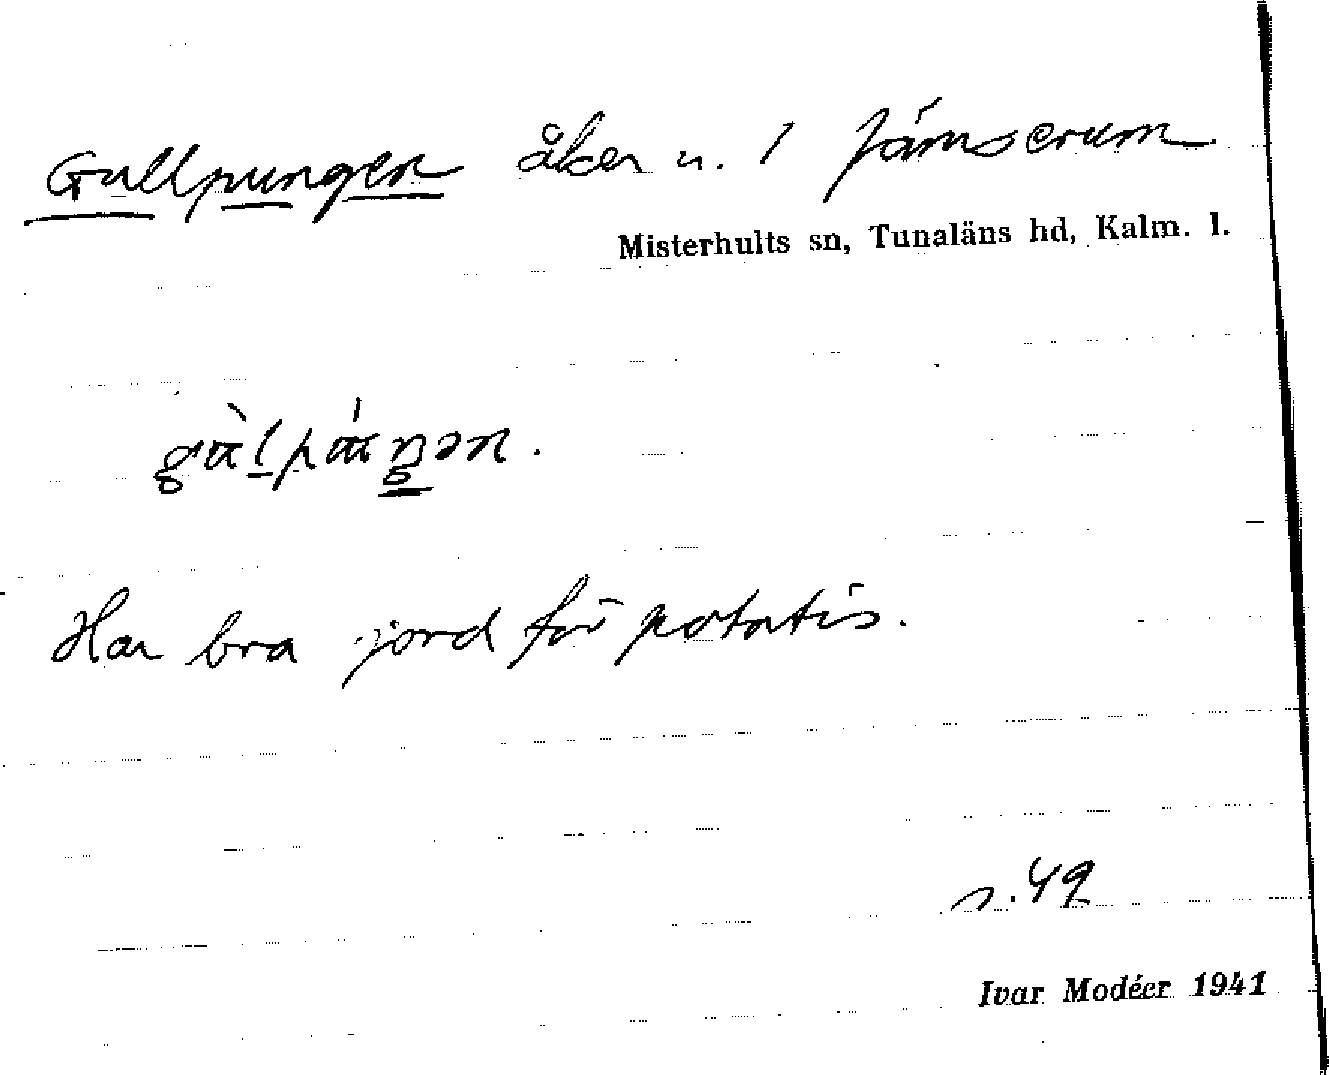 Gullpungen åker n. 1 Jämserum
Misterhults sn, Tunaläns hd, Kalm. l.
Har bra jord för potatis.
s. 49
Ivar Modéer 1941